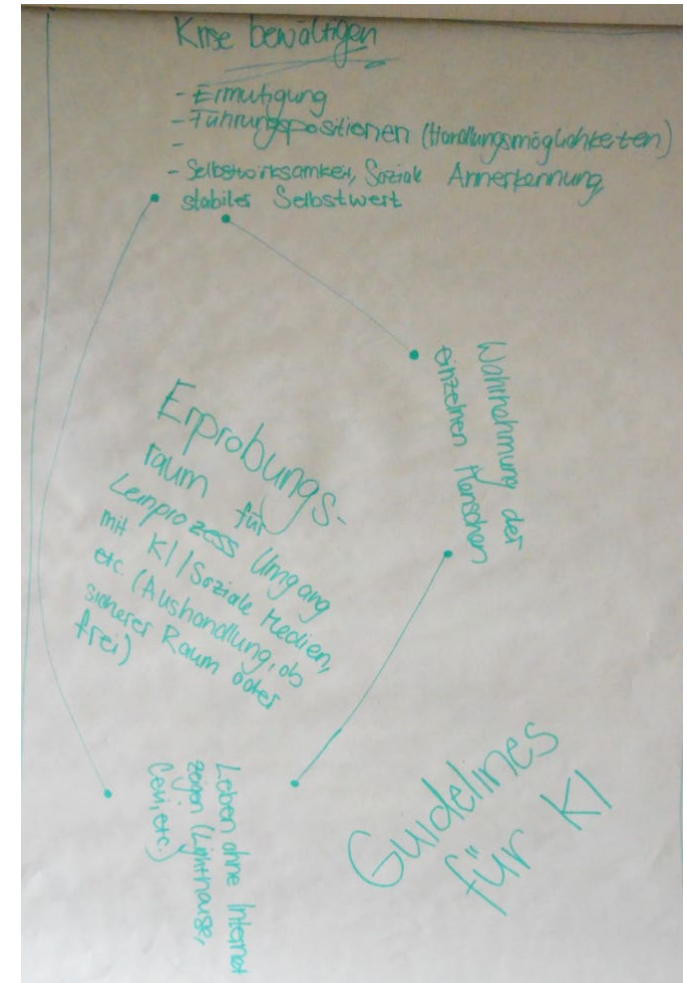 Krise bewältigen
- Ermutigung
- Führungspositionen (Handlungsmöglichkeiten)
-
- Selbstwirksamkeit, Soziale Annerkennung,
stabiler Selbstwert
Wahrnehmung der
einzelnen Menschen
Erprobungs-
raum für
Lernprozess Umgang
mit KI / Soziale Medien,
etc. (Aushandlung, ob
sicherer Raum oder
frei)
Leben ohne Internet
zeigen (Lighthouse,
Cevi, etc.)
Guidelines
für KI